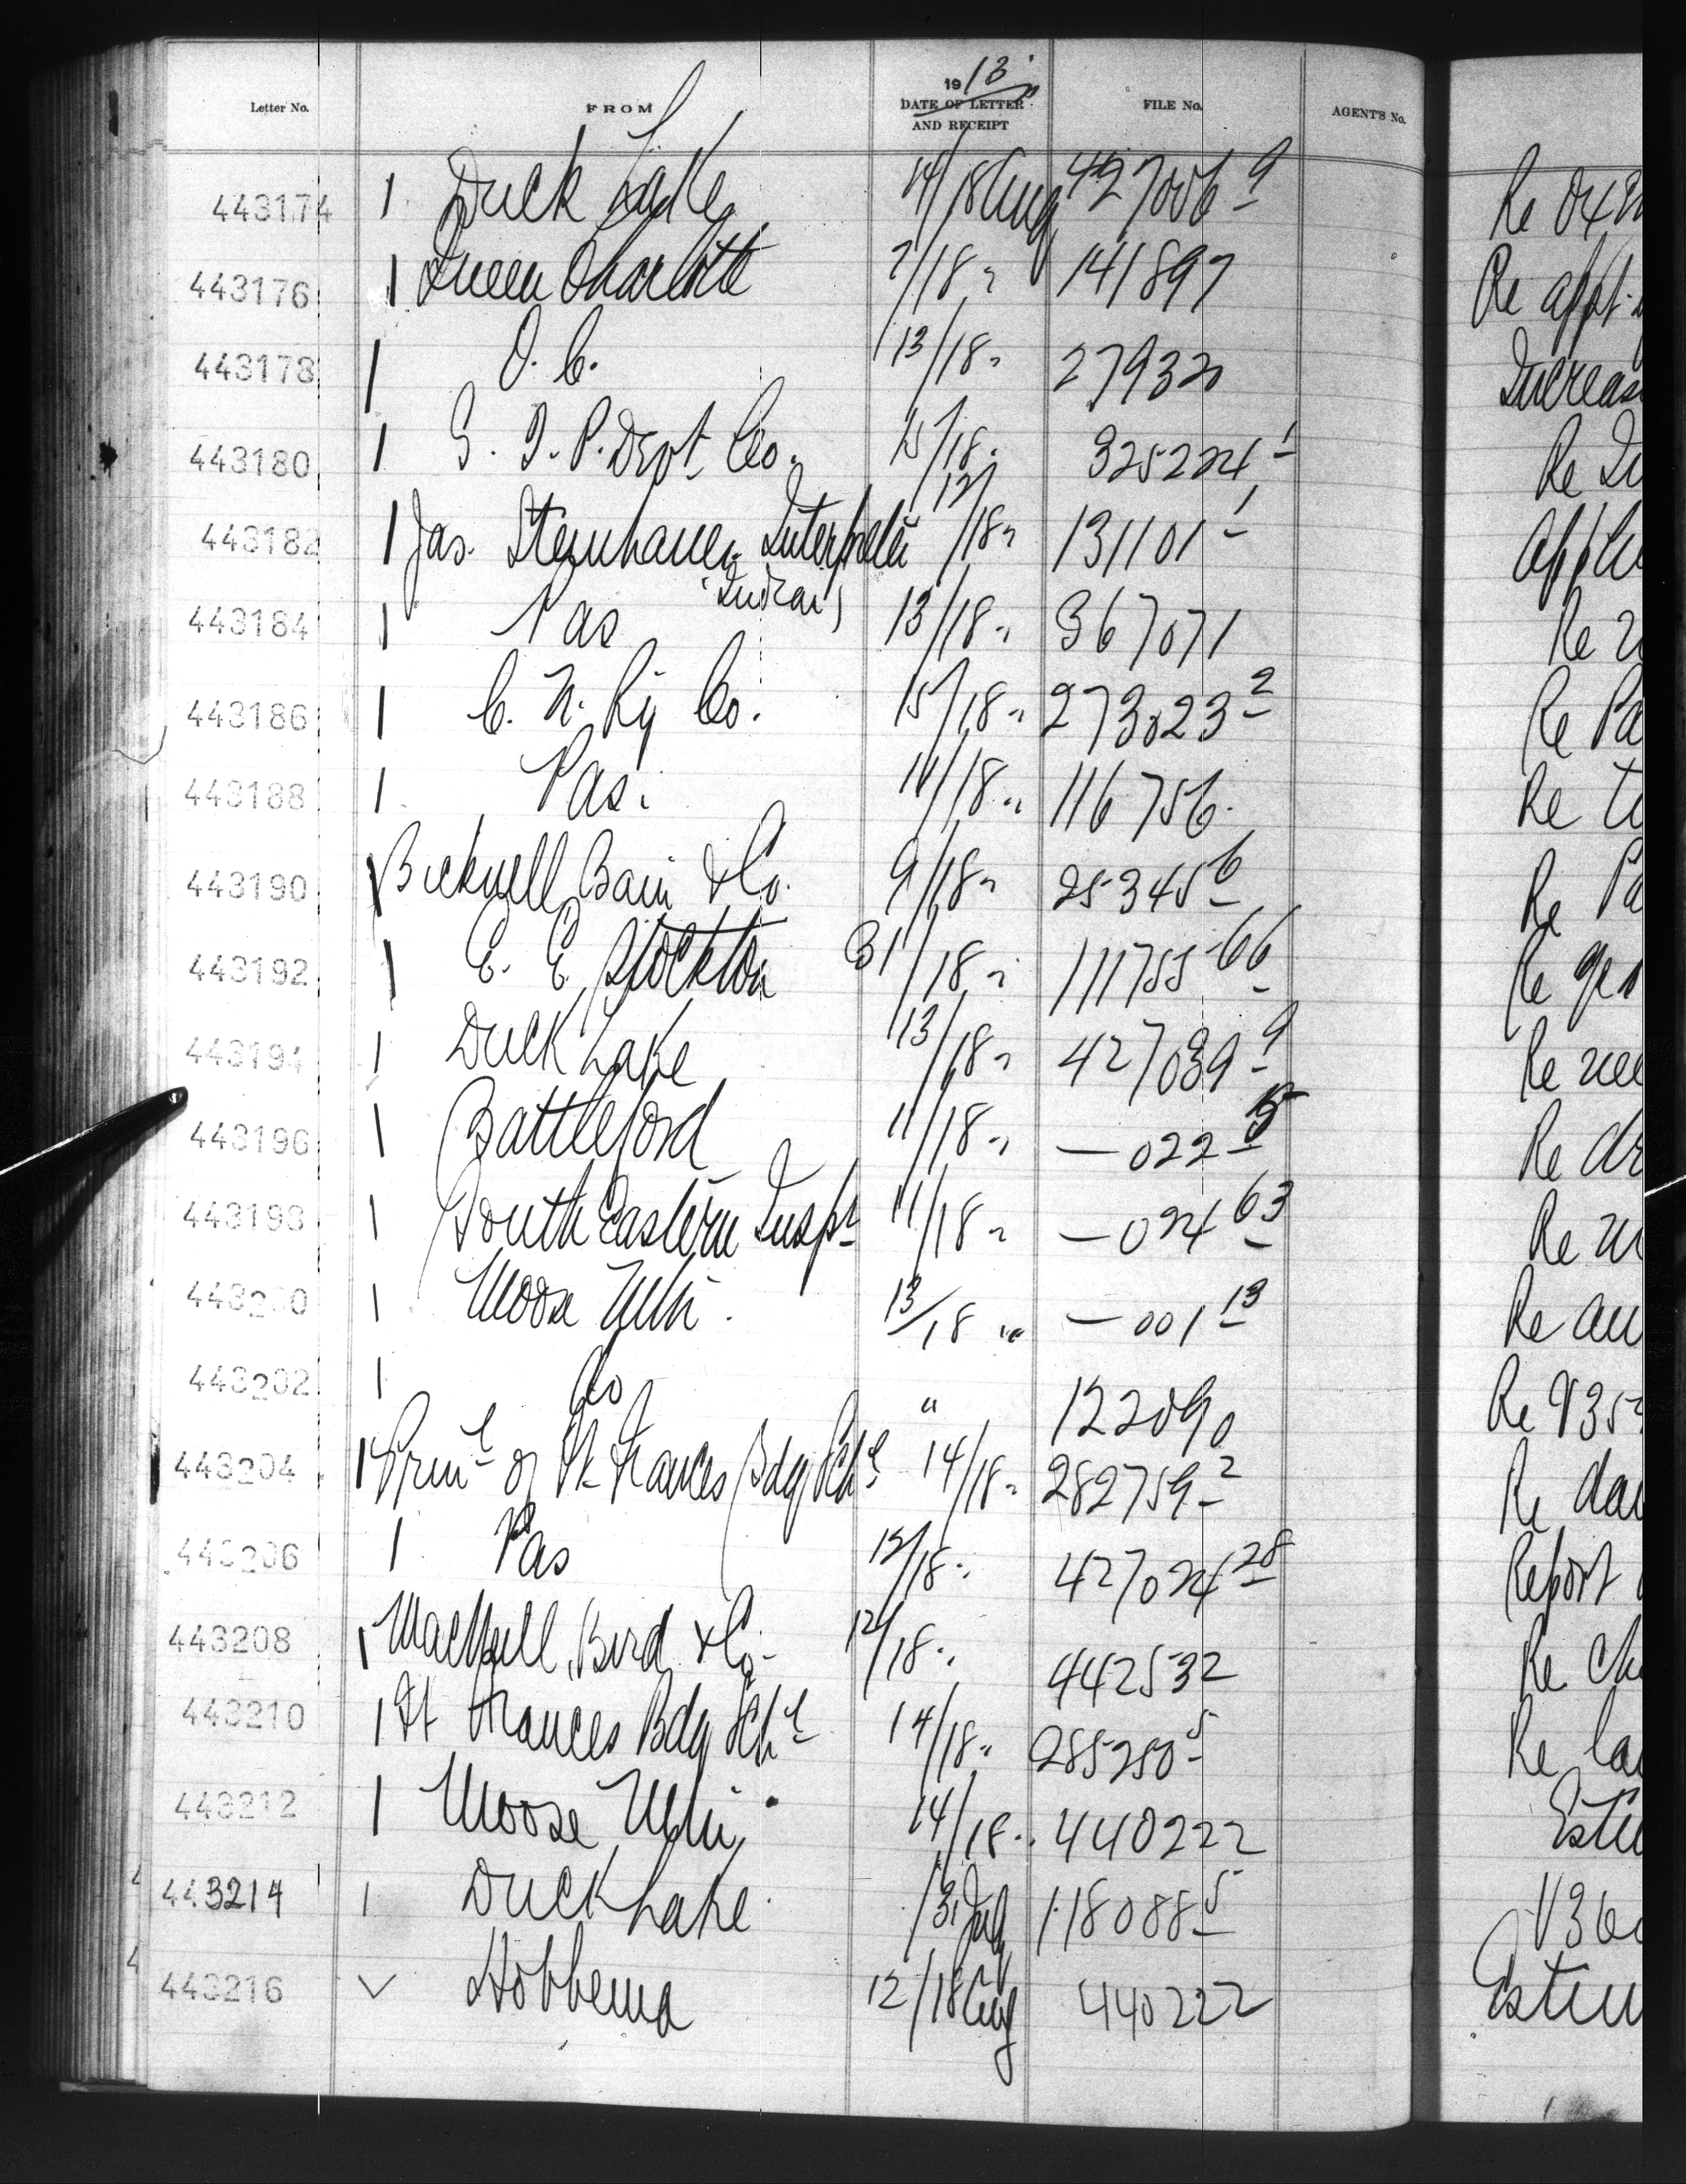 1913
Letter No. FROM DATE OF LETTER AND RECEIPT FILE No. AGENT'S No.
443174 1 Duck Lake 14/18 Aug 427006-9 Re
443176 1 Queen Charlotte 7/18 " 141897 Re appt.
443178 1 O. C. 13/18 " 27932 Increas
443180 1 G. T. P. Devt Co. 15/18 " 325224-1 Re
443182 1 Jas. Steinhauer Interpreter 12/18 " 131101-1 Applic
(Indian)
443184 1 Pas 13/18 " 367071 Re
443186 1 C. N. Ry Co. 15/18 " 273023-2 Re Pa
443188 1 Pas. 11/18 " 116756 Re
443190 1 Bicknell Bain & Co. 9/18 " 25345-6 Re Pa
443192 1 E. E. Stockton 31/18 " 111755-66 Re
443194 1 Duck Lake 13/18 " 427039-9 Re
443196 1 Battleford 11/18 " — 022-5 Re
443198 1 South Eastern Inspr 11/18 " — 024-63 Re
443200 1 Moose Mtn. 13/18 " — 001-13 Re au
443202 1 do " 122090 Re V35
443204 1 Prinl of Ft Frances Bdg Schl 14/18 " 282759-2 Re
443206 1 Pas 12/18 " 427024-28 Report
443208 1 Bird & Co. 12/18 " 442532 Re
443210 1 Ft Frances Bdg Schl 14/18 " 285250-5 Re
443212 1 Moose Mtn. 14/18 " 440222 Estim
443214 1 Duck Lake 13 July 118088-5 V36
443216 ✓ Hobbema 12/18 Aug 440222 Estim